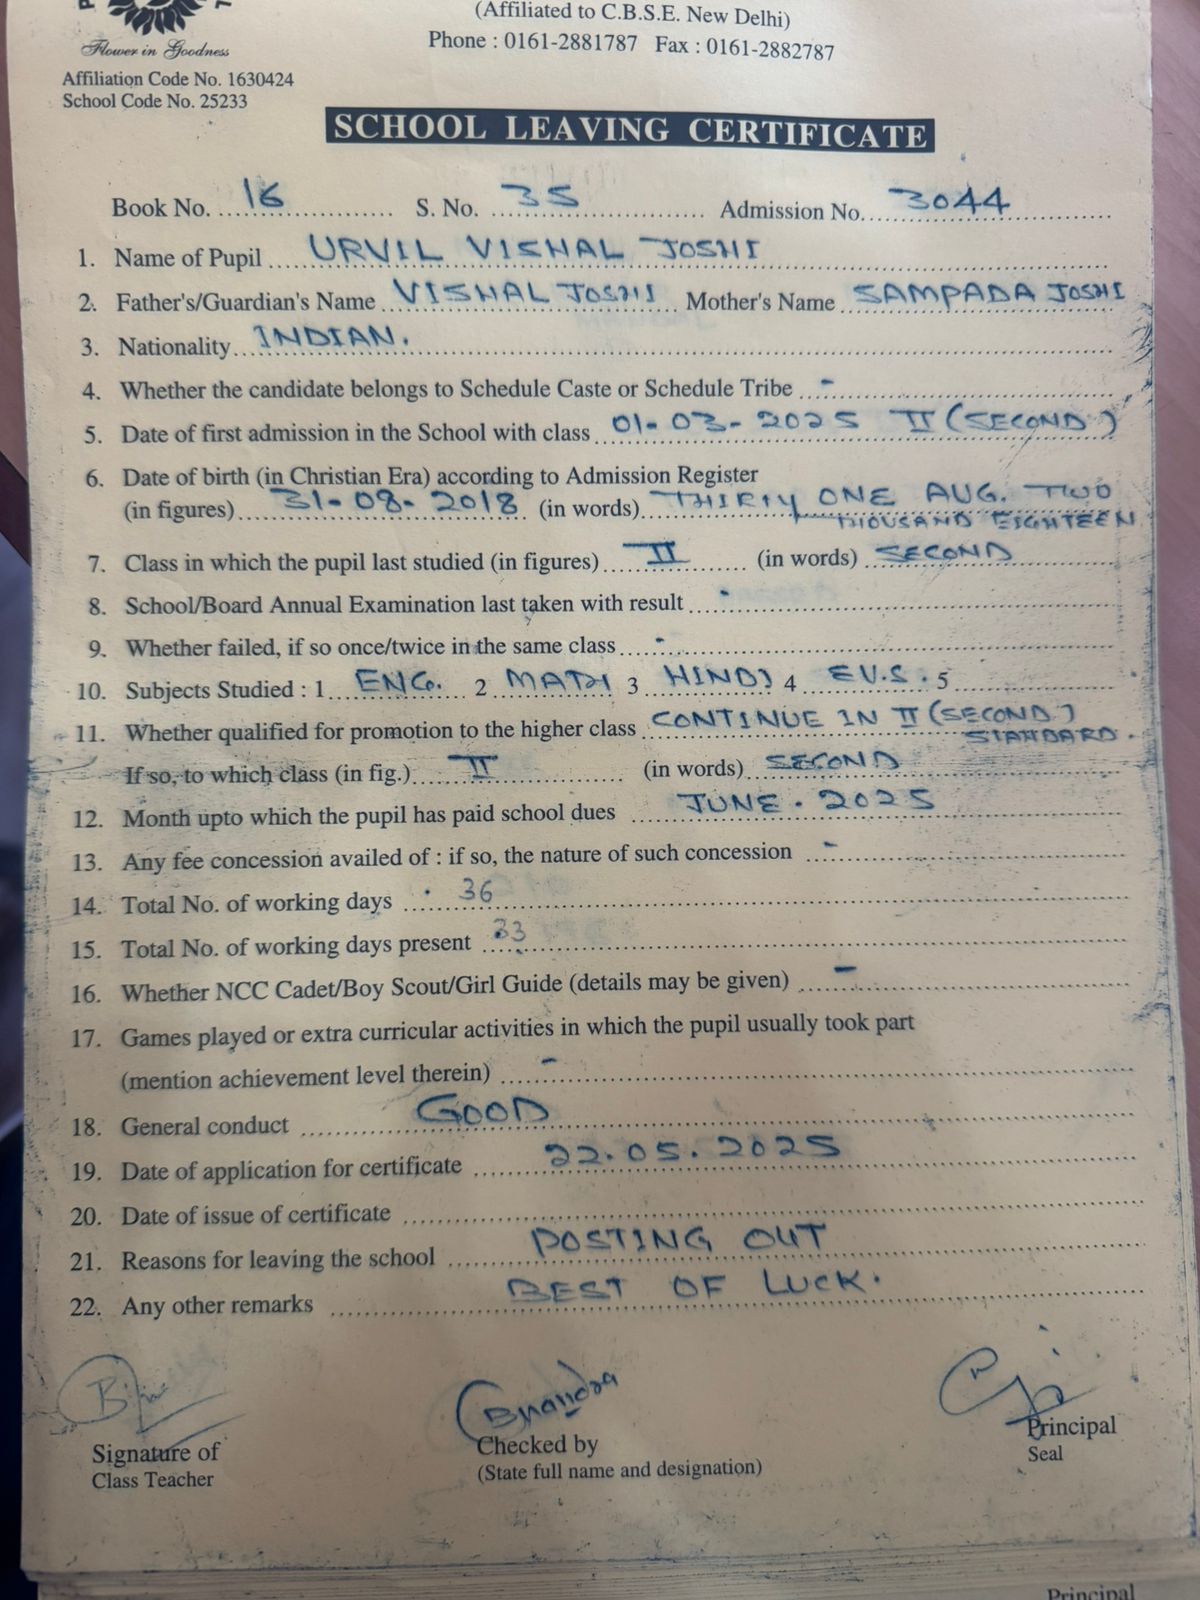 Flower in Goodness
Affiliation Code No. 1630424
School Code No. 25233
(Affiliated to C.B.S.E. New Delhi)
Phone : 0161-2881787 Fax : 0161-2882787
SCHOOL LEAVING CERTIFICATE
Book No. 16 S. No. 35 Admission No. 3044
1. Name of Pupil URVIL VISHAL JOSHI
2. Father's/Guardian's Name VISHAL JOSHI Mother's Name SAMPADA JOSHI
3. Nationality INDIAN.
4. Whether the candidate belongs to Schedule Caste or Schedule Tribe -
5. Date of first admission in the School with class 01-03-2025 II (SECOND)
6. Date of birth (in Christian Era) according to Admission Register
(in figures) 31-08-2018 (in words) THIRTY ONE AUG. TWO
THOUSAND EIGHTEEN
7. Class in which the pupil last studied (in figures) II (in words) SECOND
8. School/Board Annual Examination last taken with result -
9. Whether failed, if so once/twice in the same class -
10. Subjects Studied : 1 ENG. 2 MATH 3 HINDI 4 EV.S. 5
11. Whether qualified for promotion to the higher class CONTINUE IN II (SECOND)
STANDARD.
If so, to which class (in fig.) II (in words) SECOND
12. Month upto which the pupil has paid school dues JUNE. 2025
13. Any fee concession availed of : if so, the nature of such concession -
14. Total No. of working days 36
15. Total No. of working days present 33
16. Whether NCC Cadet/Boy Scout/Girl Guide (details may be given) -
17. Games played or extra curricular activities in which the pupil usually took part
(mention achievement level therein) -
18. General conduct GOOD
19. Date of application for certificate 22.05.2025
20. Date of issue of certificate
21. Reasons for leaving the school POSTING OUT
22. Any other remarks BEST OF LUCK.
Signature of
Class Teacher
Checked by
(State full name and designation)
Principal
Seal
Principal